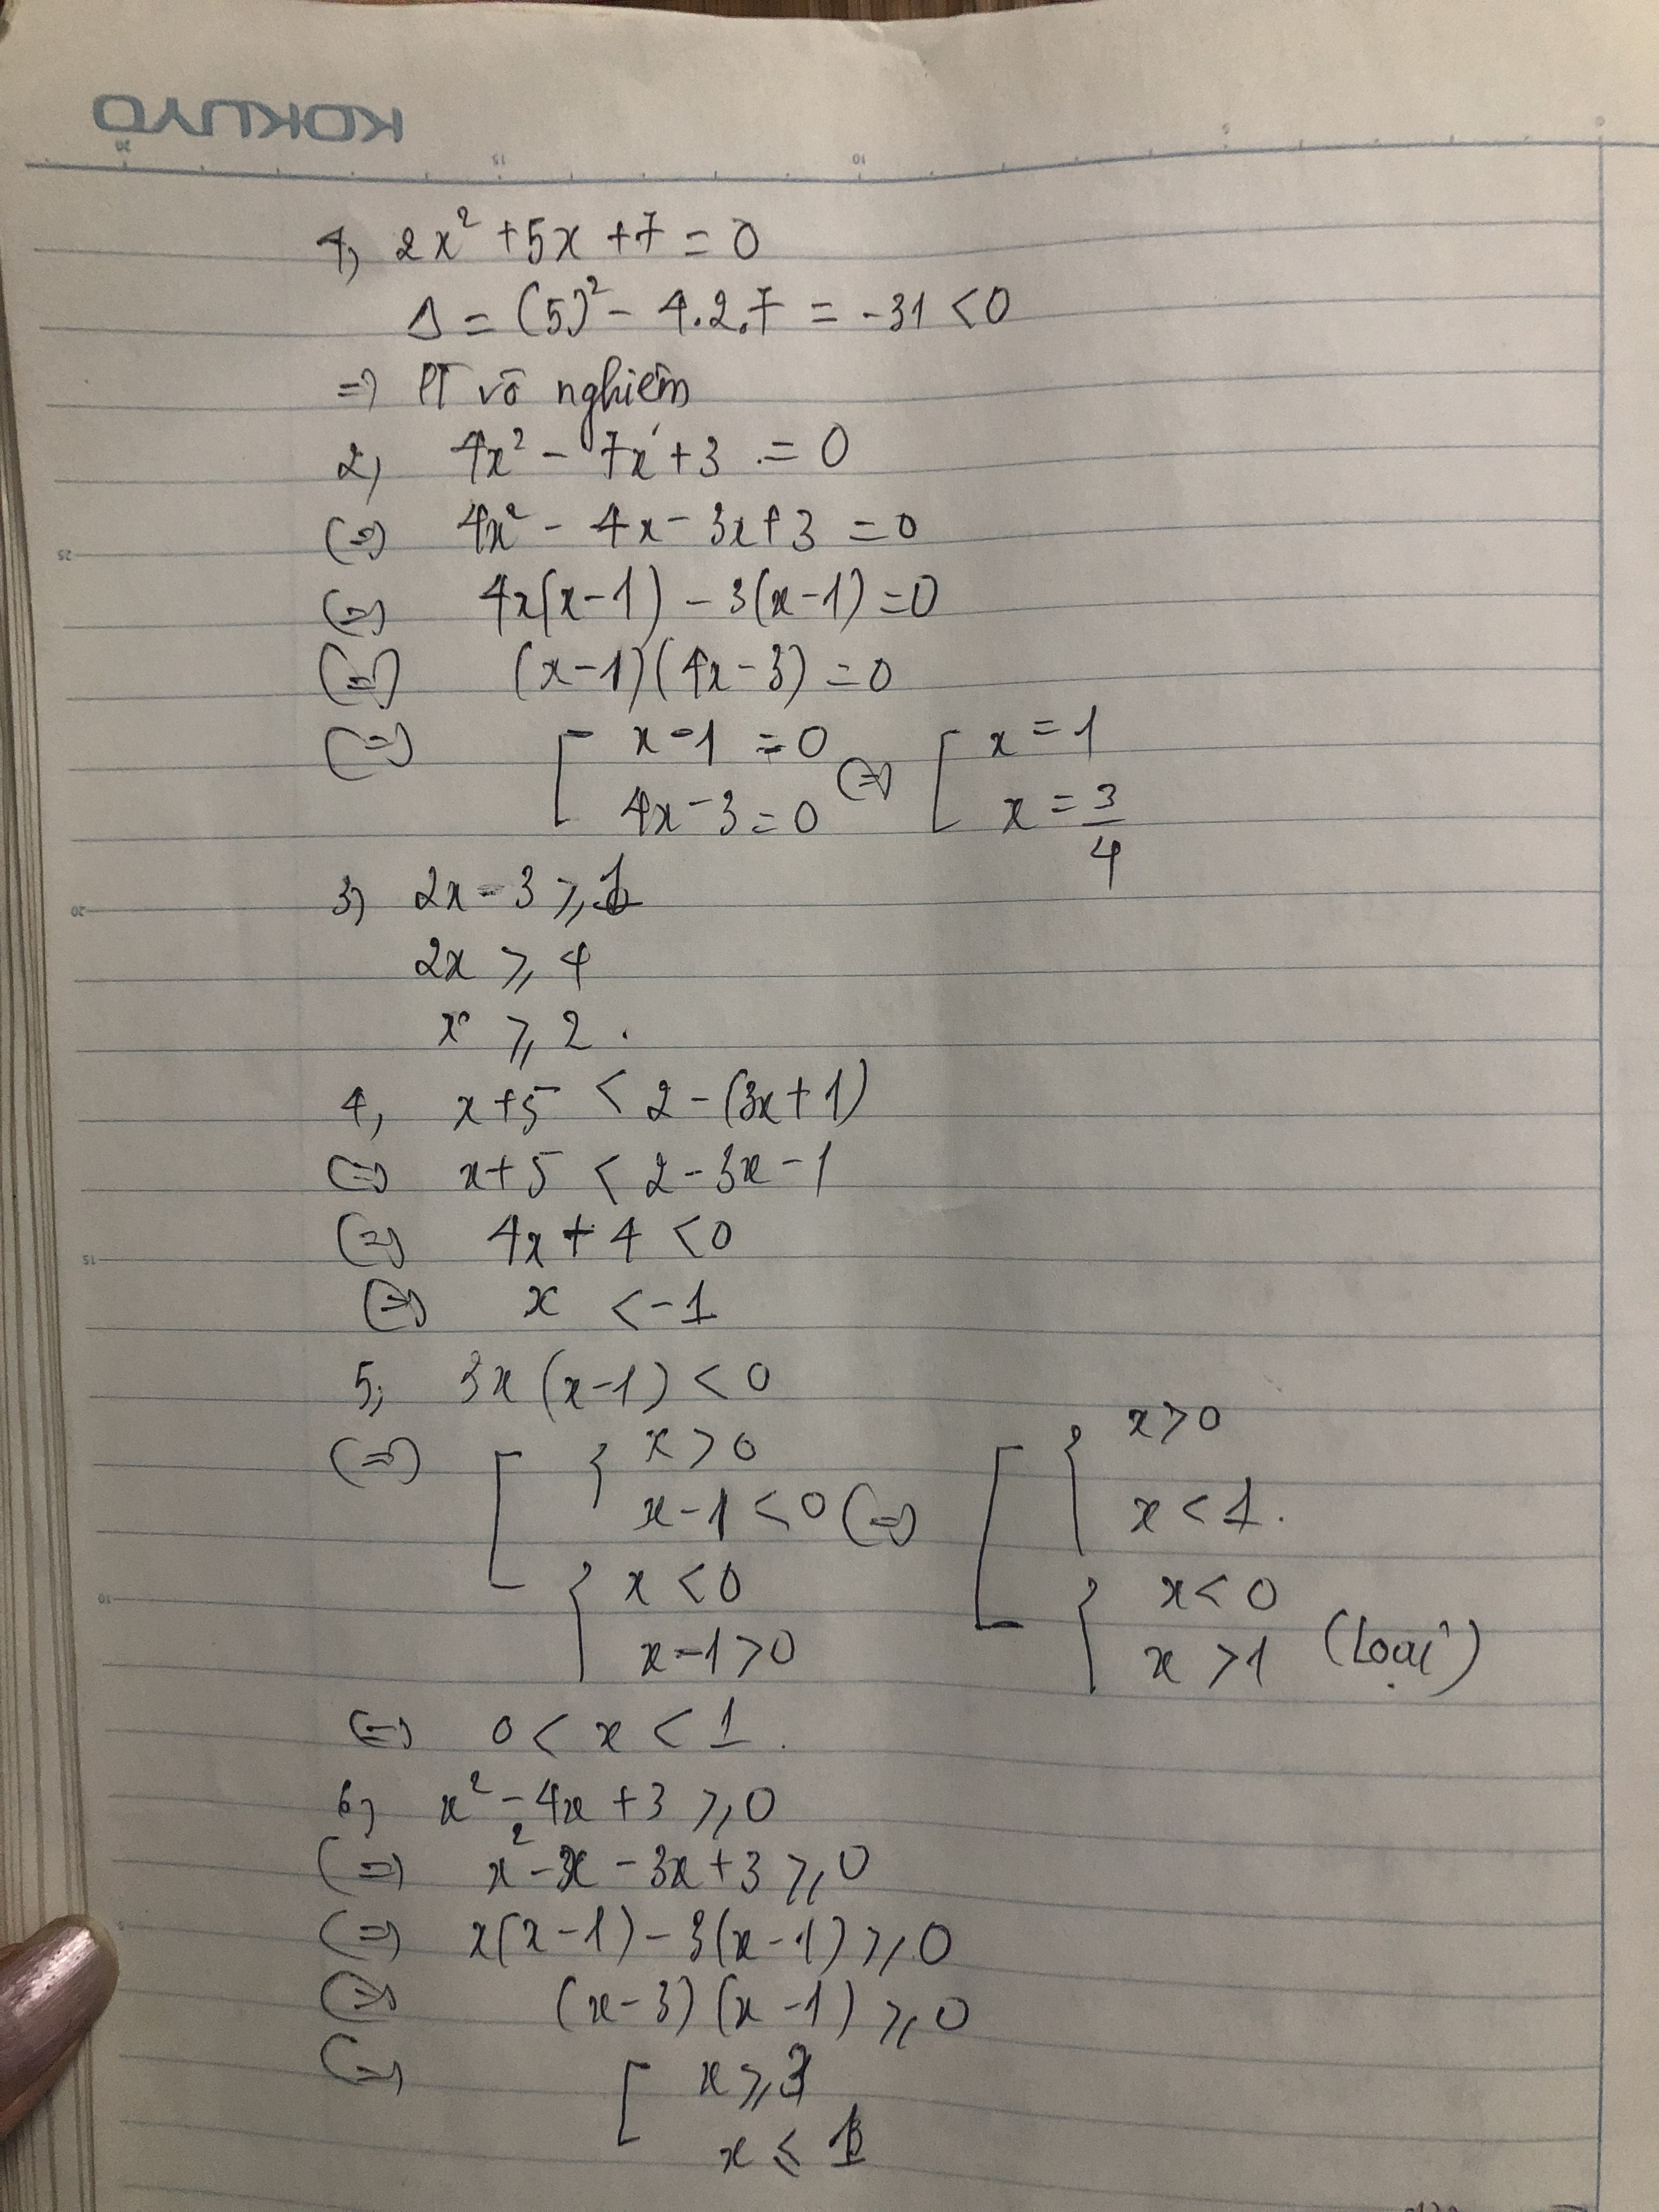 KOKUYO
20 15 10 5 0
1, 2x² + 5x + 7 = 0
Δ = (5)² - 4.2.7 = -31 < 0
=> PT vô nghiêm
2, 4x² - 7x + 3 = 0
(=) 4x² - 4x - 3x + 3 = 0
(=) 4x(x-1) - 3(x-1) = 0
(=) (x-1)(4x-3) = 0
(=) [ x-1 = 0 (=) [ x = 1
4x-3 = 0 x = 3/4
3, 2x - 3 ⩾ 1
2x ⩾ 4
x ⩾ 2.
4, x+5 < 2 - (3x+1)
(=) x+5 < 2 - 3x - 1
(=) 4x + 4 < 0
(=) x < -1
5, 3x(x-1) < 0
(=) [ { x > 0 (=) [ { x > 0
x-1 < 0 x < 1.
{ x < 0 { x < 0
x-1 > 0 x > 1 (Loại)
(=) 0 < x < 1.
6, x² - 4x + 3 ⩾ 0
(=) x² - x - 3x + 3 ⩾ 0
(=) x(x-1) - 3(x-1) ⩾ 0
(=) (x-3)(x-1) ⩾ 0
(=) [ x ⩾ 3
x ≤ 1
25
20
15
10
5